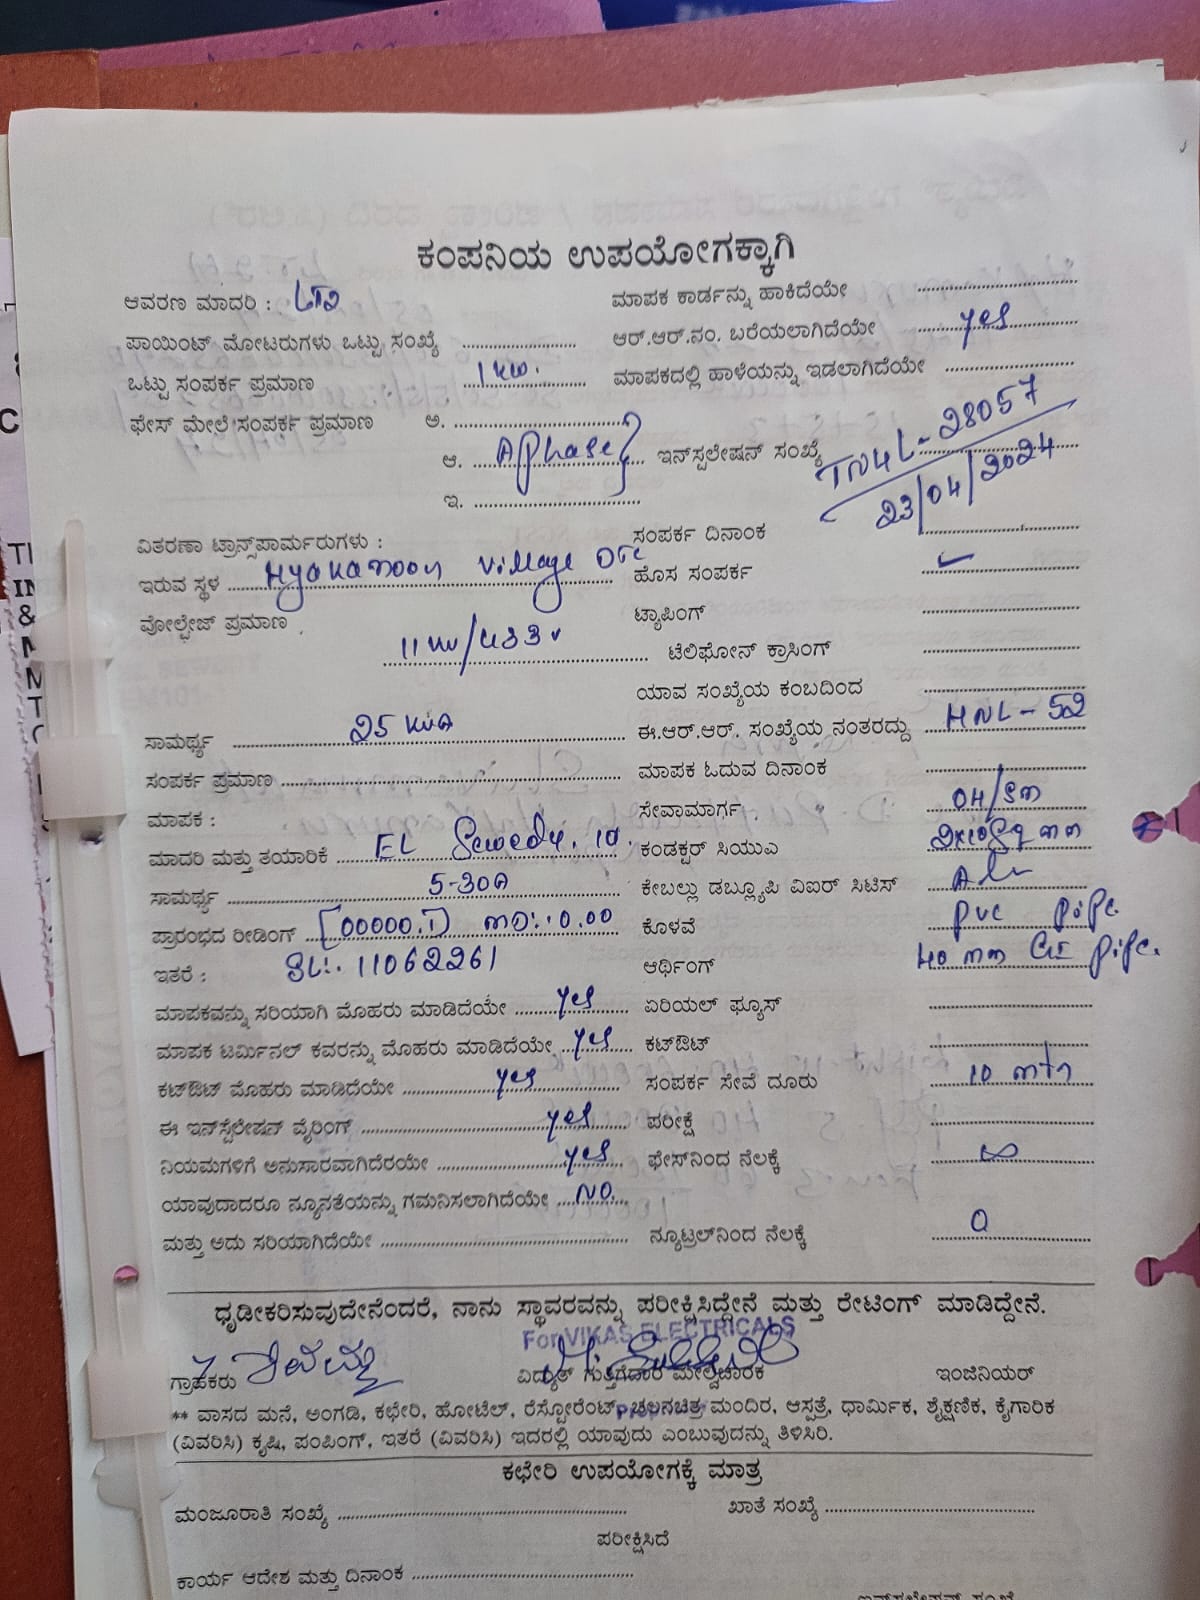 ಕಂಪನಿಯ ಉಪಯೋಗಕ್ಕಾಗಿ
ಆವರಣ ಮಾದರಿ : LT2
ಮಾಪಕ ಕಾರ್ಡನ್ನು ಹಾಕಿದೆಯೇ
ಪಾಯಿಂಟ್ ಮೋಟರುಗಳು ಒಟ್ಟು ಸಂಖ್ಯೆ
ಆರ್.ಆರ್.ನಂ. ಬರೆಯಲಾಗಿದೆಯೇ yes
ಒಟ್ಟು ಸಂಪರ್ಕ ಪ್ರಮಾಣ 1 kw.
ಮಾಪಕದಲ್ಲಿ ಹಾಳೆಯನ್ನು ಇಡಲಾಗಿದೆಯೇ
ಫೇಸ್ ಮೇಲೆ ಸಂಪರ್ಕ ಪ್ರಮಾಣ ಅ.
ಆ. A phase
ಇನ್‌ಸ್ಪಲೇಷನ್ ಸಂಖ್ಯೆ TN4L-28057
23/04/2024
ಇ.
ವಿತರಣಾ ಟ್ರಾನ್ಸ್‌ಪಾರ್ಮರುಗಳು :
ಸಂಪರ್ಕ ದಿನಾಂಕ
ಇರುವ ಸ್ಥಳ Hyakanoor village
ಹೊಸ ಸಂಪರ್ಕ ✓
ವೋಲ್ಟೇಜ್ ಪ್ರಮಾಣ 11kv/433v
ಟ್ಯಾಪಿಂಗ್
ಟೆಲಿಫೋನ್ ಕ್ರಾಸಿಂಗ್
ಯಾವ ಸಂಖ್ಯೆಯ ಕಂಬದಿಂದ
ಸಾಮರ್ಥ್ಯ 25 KVA
ಈ.ಆರ್.ಆರ್. ಸಂಖ್ಯೆಯ ನಂತರದ್ದು HNL-52
ಸಂಪರ್ಕ ಪ್ರಮಾಣ
ಮಾಪಕ ಓದುವ ದಿನಾಂಕ
ಮಾಪಕ :
ಸೇವಾಮಾರ್ಗ OH/
ಮಾದರಿ ಮತ್ತು ತಯಾರಿಕೆ EL Sewedy. 10.
ಕಂಡಕ್ಟರ್ ಸಿಯುಎ
ಸಾಮರ್ಥ್ಯ 5-30A
ಕೇಬಲ್ಲು ಡಬ್ಲ್ಯೂಪಿ ವಿಐರ್ ಸಿಟಿಸ್
ಪ್ರಾರಂಭದ ರೀಡಿಂಗ್ [00000.1] 0.00
ಕೊಳವೆ pvc pipe
ಇತರೆ : SL:. 11062261
ಆರ್ಥಿಂಗ್ 40 mm GI pipe.
ಮಾಪಕವನ್ನು ಸರಿಯಾಗಿ ಮೊಹರು ಮಾಡಿದೆಯೇ yes
ಏರಿಯಲ್ ಫ್ಯೂಸ್
ಮಾಪಕ ಟರ್ಮಿನಲ್ ಕವರನ್ನು ಮೊಹರು ಮಾಡಿದೆಯೇ yes
ಕಟ್‌ಔಟ್
ಕಟ್‌ಔಟ್ ಮೊಹರು ಮಾಡಿದೆಯೇ yes
ಸಂಪರ್ಕ ಸೇವೆ ದೂರು 10 mtr
ಈ ಇನ್‌ಸ್ಪಲೇಷನ್ ವೈರಿಂಗ್ yes
ಪರೀಕ್ಷೆ
ನಿಯಮಗಳಿಗೆ ಅನುಸಾರವಾಗಿದೆರಯೇ yes
ಫೇಸ್‌ನಿಂದ ನೆಲಕ್ಕೆ ∞
ಯಾವುದಾದರೂ ನ್ಯೂನತೆಯನ್ನು ಗಮನಿಸಲಾಗಿದೆಯೇ NO.
ಮತ್ತು ಅದು ಸರಿಯಾಗಿದೆಯೇ
ನ್ಯೂಟ್ರಲ್‌ನಿಂದ ನೆಲಕ್ಕೆ 0
ಧೃಡೀಕರಿಸುವುದೇನೆಂದರೆ, ನಾನು ಸ್ಥಾವರವನ್ನು ಪರೀಕ್ಷಿಸಿದ್ದೇನೆ ಮತ್ತು ರೇಟಿಂಗ್ ಮಾಡಿದ್ದೇನೆ.
For VIKAS ELECTRICALS
ಗ್ರಾಹಕರು ವಿದ್ಯುತ್ ಗುತ್ತಿಗೆದಾರ ಮೇಲ್ವಿಚಾರಕ ಇಂಜಿನಿಯರ್
** ವಾಸದ ಮನೆ, ಅಂಗಡಿ, ಕಛೇರಿ, ಹೋಟೆಲ್, ರೆಸ್ಟೋರೆಂಟ್, ಚಲನಚಿತ್ರ ಮಂದಿರ, ಆಸ್ಪತ್ರೆ, ಧಾರ್ಮಿಕ, ಶೈಕ್ಷಣಿಕ, ಕೈಗಾರಿಕ
(ವಿವರಿಸಿ) ಕೃಷಿ, ಪಂಪಿಂಗ್, ಇತರೆ (ವಿವರಿಸಿ) ಇದರಲ್ಲಿ ಯಾವುದು ಎಂಬುವುದನ್ನು ತಿಳಿಸಿರಿ.
ಕಛೇರಿ ಉಪಯೋಗಕ್ಕೆ ಮಾತ್ರ
ಮಂಜೂರಾತಿ ಸಂಖ್ಯೆ ಖಾತೆ ಸಂಖ್ಯೆ
ಪರೀಕ್ಷಿಸಿದೆ
ಕಾರ್ಯ ಆದೇಶ ಮತ್ತು ದಿನಾಂಕ